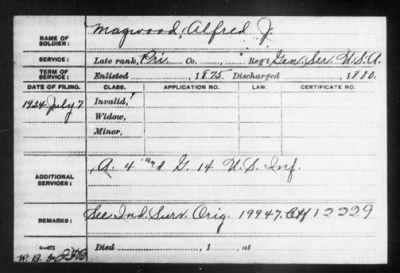 NAME OF SOLDIER: Magwood, Alfred J.
SERVICE: Late rank, Pri. Co. , Reg't Gen. Ser. U.S.A.
TERM OF SERVICE: Enlisted 1875 Discharged , 1880.
DATE OF FILING. CLASS. APPLICATION NO. LAW. CERTIFICATE NO.
1924 July 7 Invalid, "
Widow,
Minor,
ADDITIONAL SERVICES: A. 4 and G. 14 U.S. Inf.
REMARKS: See Ind. Surv. Orig. 19947. Ctf 12229
Died , 1 , at